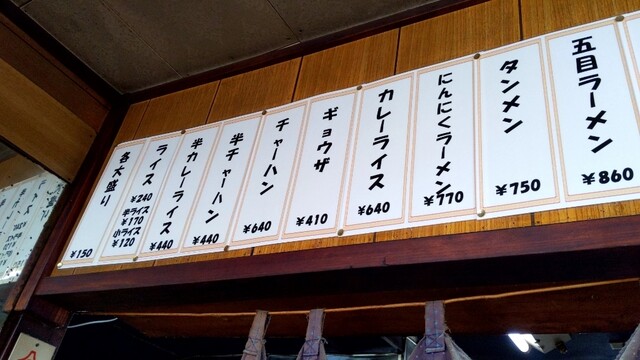 五目ラーメン
¥860
タンメン
¥750
にんにくラーメン
¥770
カレーライス
¥640
ギョウザ
¥410
チャーハン
¥640
半チャーハン
¥440
半カレーライス
¥440
ライス
¥240
半ライス
¥170
小ライス
¥120
各大盛り
¥150